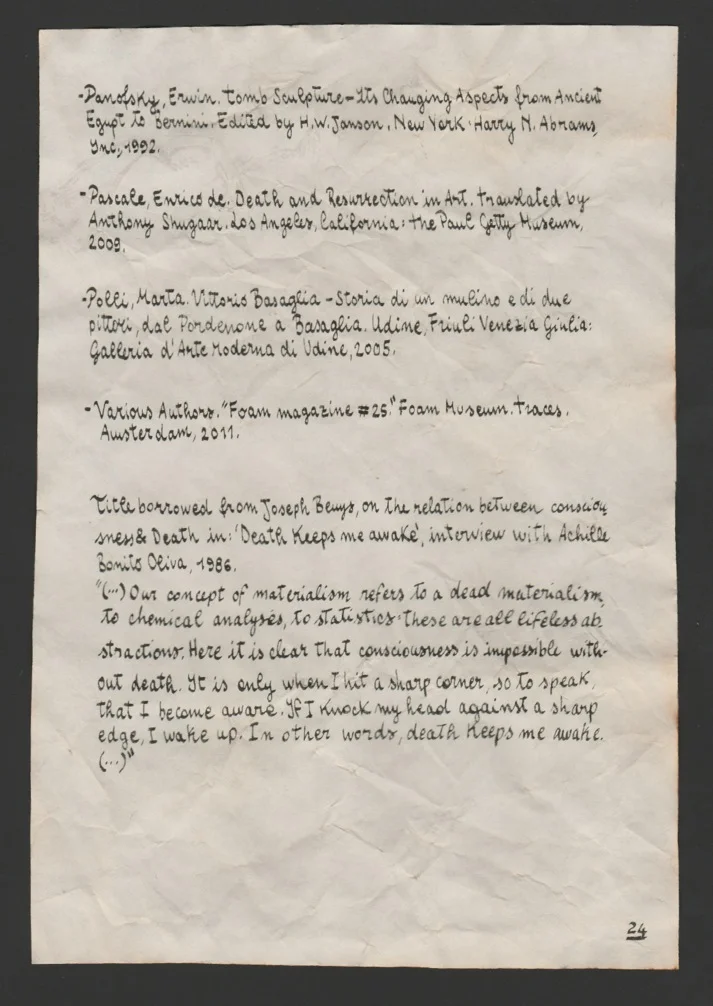 -Panofsky, Erwin. Tomb Sculpture - Its Changing Aspects from Ancient
Egypt to Bernini. Edited by H.W. Janson. New York: Harry N. Abrams,
Inc., 1992.
-Pascale, Enrico de. Death and Resurrection in Art. Translated by
Anthony Shugaar. Los Angeles, California: the Paul Getty Museum,
2009.
-Polli, Marta. Vittorio Basaglia - Storia di un mulino e di due
pittori, dal Pordenone a Basaglia. Udine, Friuli Venezia Giulia:
Galleria d'Arte Moderna di Udine, 2005.
-Various Authors. "Foam magazine #25." Foam Museum. Traces.
Amsterdam, 2011.
Title borrowed from Joseph Beuys, on the relation between conscious
ness & Death in: 'Death Keeps me awake', interview with Achille
Bonito Oliva, 1986.
"(...) Our concept of materialism refers to a dead materialism,
to chemical analyses, to statistics: these are all lifeless ab.
stractions. Here it is clear that consciousness is impossible with-
out death. It is only when I hit a sharp corner, so to speak,
that I become aware. If I knock my head against a sharp
edge, I wake up. In other words, death keeps me awake.
(...)"
24